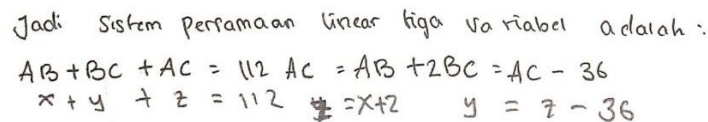 Jadi Sistem persamaan linear tiga variabel adalah :
AB + BC + AC = 112 AC = AB + 2BC = AC - 36
x + y + z = 112 z = x+2 y = z - 36